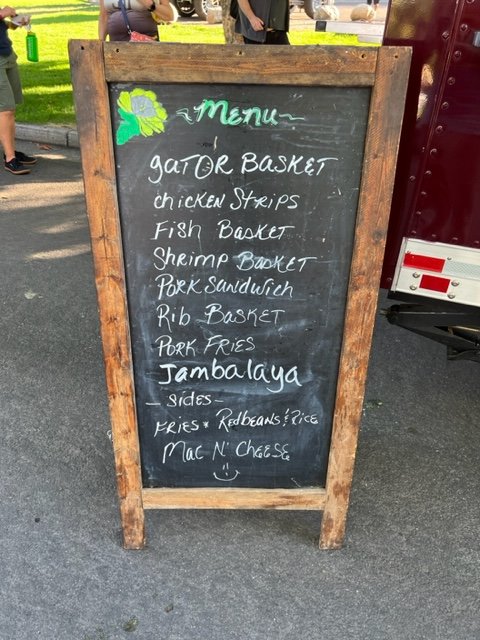 ~Menu~
gaTOR BASKET
chicken Strips
Fish Basket
Shrimp Basket
Pork Sandwich
Rib Basket
Pork Fries
Jambalaya
- sides -
Fries * Redbeans & Rice
Mac N' Cheese